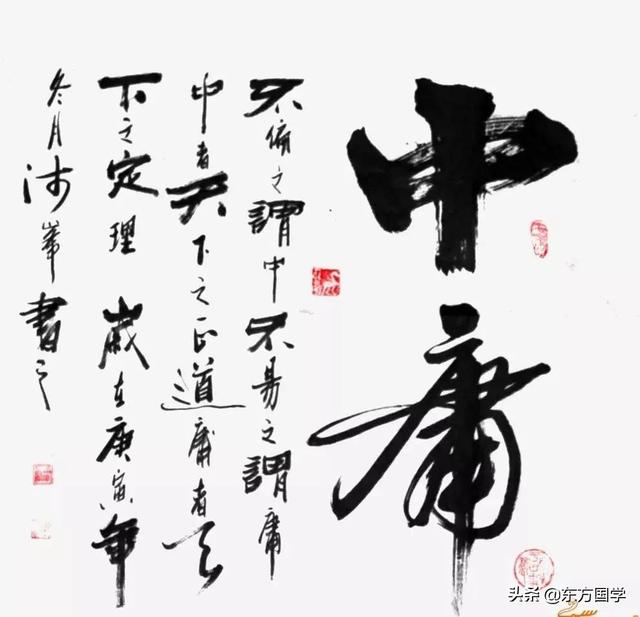 中庸
不偏之謂中不易之謂庸
中者天下之正道庸者天
下之定理 歲在庚寅年
冬月沛峯書之
头条 @东方国学